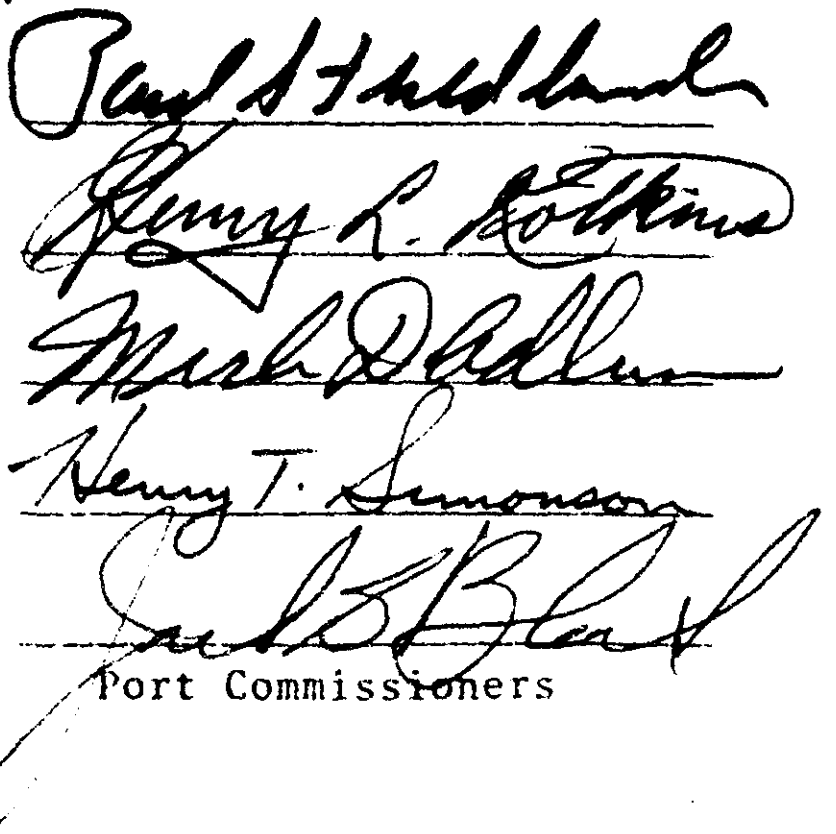 Paul S Friedlander
Henry L. Kotkins
Merle D Adlum
Henry T. Simonson
Jack S Block
Port Commissioners